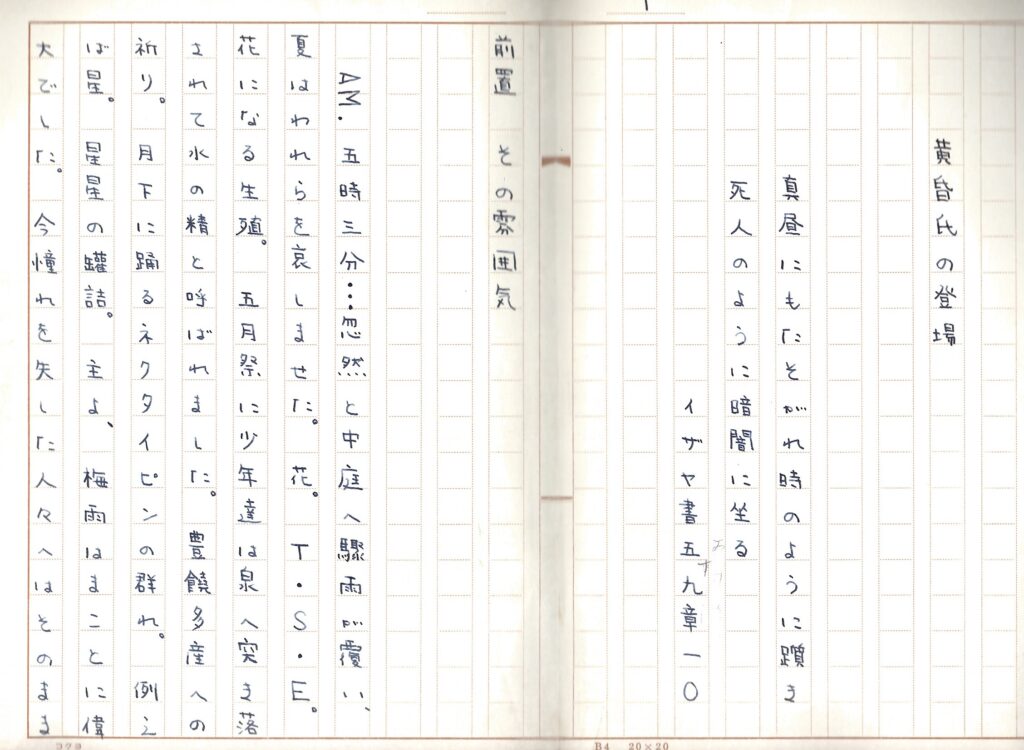 黄昏氏の登場
真昼にもたそがれ時のように躓き
死人のように暗闇に坐る
イザヤ書五九章一〇
前置 その雰囲気
AM.五時三分…忽然と中庭へ驟雨が覆い、
夏はわれらを哀しませた。花。T・S・E。
花になる生殖。五月祭に少年達は泉へ突き落
されて水の精と呼ばれました。豊饒多産への
祈り。月下に踊るネクタイピンの群れ。例え
ば星。星星の罐詰。主よ、梅雨はまことに偉
大でした。今憧れを失した人々へはそのまま
コクヨ
B4 20×20